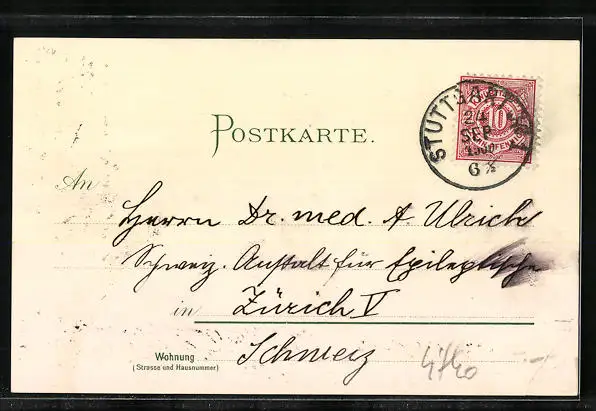 POSTKARTE.
STUTTGART
24
SEP
1900
10
An
Herrn Dr. med. A. Ulrich
Schweiz. Anstalt für Epileptische
in Zürich V
Wohnung
(Strasse und Hausnummer)
Schweiz